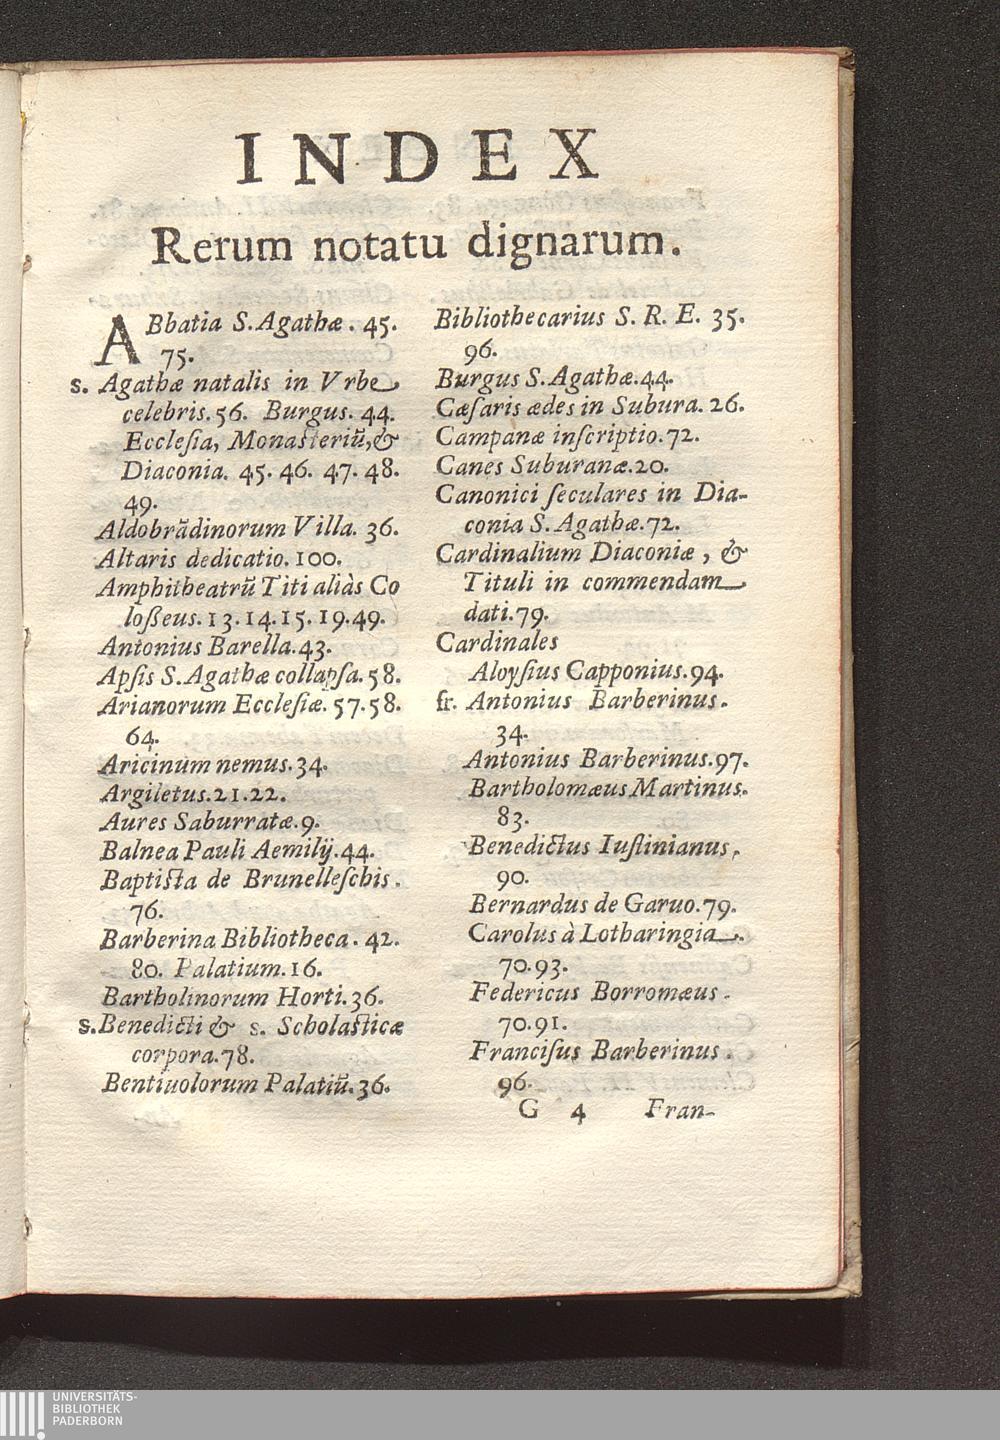 INDEX
Rerum notatu dignarum.
ABbatia S. Agathæ. 45.
75.
s. Agathæ natalis in Vrbe
celebris. 56. Burgus. 44.
Ecclesia, Monasteriũ, &
Diaconia. 45. 46. 47. 48.
49.
Aldobrãdinorum Villa. 36.
Altaris dedicatio. 100.
Amphitheatrũ Titi aliàs Co
loßeus. 13. 14. 15. 19. 49.
Antonius Barella. 43.
Apſis S. Agathæ collapſa. 58.
Arianorum Eccleſiæ. 57. 58.
64.
Aricinum nemus. 34.
Argiletus. 21. 22.
Aures Saburratæ. 9.
Balnea Pauli Aemilij. 44.
Baptista de Brunelleſchis.
76.
Barberina Bibliotheca. 42.
80. Palatium. 16.
Bartholinorum Horti. 36.
s. Benedicti & s. Scholasticæ
corpora. 78.
Bentiuolorum Palatiũ. 36.
Bibliothecarius S. R. E. 35.
96.
Burgus S. Agathæ. 44.
Cæſaris ædes in Subura. 26.
Campanæ inſcriptio. 72.
Canes Suburanæ. 20.
Canonici ſeculares in Dia-
conia S. Agathæ. 72.
Cardinalium Diaconiæ, &
Tituli in commendam
dati. 79.
Cardinales
Aloyſius Capponius. 94.
fr. Antonius Barberinus.
34.
Antonius Barberinus. 97.
Bartholomæus Martinus.
83.
Benedictus Iuſtinianus.
90.
Bernardus de Garuo. 79.
Carolus à Lotharingia.
70. 93.
Federicus Borromæus.
70. 91.
Franciſus Barberinus.
96.
G 4 Fran-
UNIVERSITÄTS-
BIBLIOTHEK
PADERBORN